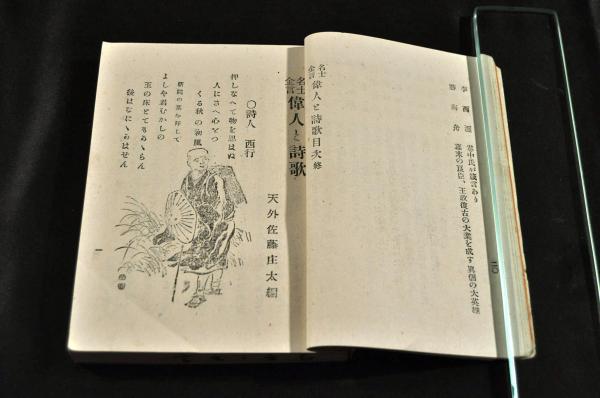 李西涯　君中氏が發言あり
勝海舟　幕末の良臣、王政復古の大業を成す眞個の大英雄
二〇
名士金言 偉人と詩歌目次終
名士金言 偉人と詩歌
天外佐藤庄太編
〇詩人　西行
押しなへて物を思はぬ
人にさへ心をつ
くる秋の初風
よしや君むかしの
玉の床とてもかゝらん
後はなにゝかはせん
一